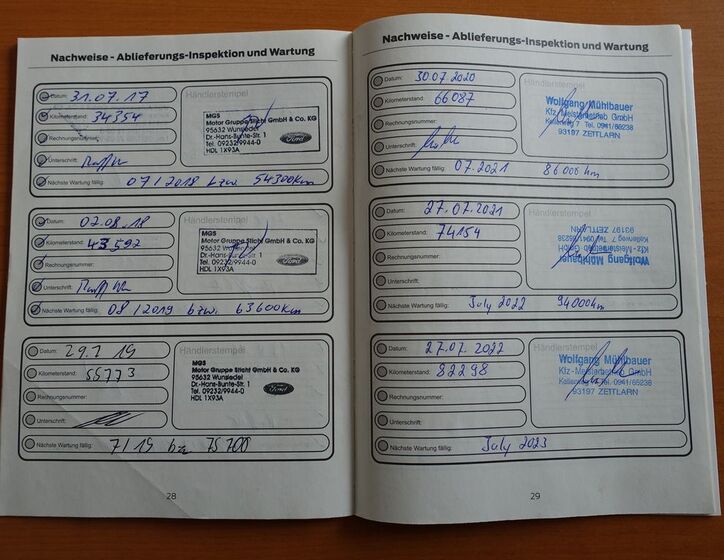 Nachweise - Ablieferungs-Inspektion und Wartung
Datum: 31.07.17
Händlerstempel
Kilometerstand: 34354
MGS
Motor Gruppe Sticht GmbH & Co. KG
95632 Wunsiedel
Dr.-Hans-Bunte-Str. 1
Tel. 09232/9944-0
HDL 1X93A
Ford
Rechnungsnummer:
Unterschrift:
Nächste Wartung fällig: 07/2018 bzw. 54300km
Datum: 02.08.18
Händlerstempel
Kilometerstand: 43592
MGS
Motor Gruppe Sticht GmbH & Co. KG
95632 Wunsiedel
Dr.-Hans-Bunte-Str. 1
Tel. 09232/9944-0
HDL 1X93A
Ford
Rechnungsnummer:
Unterschrift:
Nächste Wartung fällig: 08/2019 bzw. 63600km
Datum: 29.7 19
Händlerstempel
Kilometerstand: 55773
MGS
Motor Gruppe Sticht GmbH & Co. KG
95632 Wunsiedel
Dr.-Hans-Bunte-Str. 1
Tel. 09232/9944-0
HDL 1X93A
Ford
Rechnungsnummer:
Unterschrift:
Nächste Wartung fällig: 7/19 bzw 75700
28
Nachweise - Ablieferungs-Inspektion und Wartung
Datum: 30.07.2020
Händlerstempel
Kilometerstand: 66087
Wolfgang Mühlbauer
Kfz-Meisterbetrieb GmbH
Kallenweg 7 Tel. 0941/65238
93197 ZEITLARN
Rechnungsnummer:
Unterschrift:
Nächste Wartung fällig: 07.2021 86000km
Datum: 27.07.2021
Händlerstempel
Kilometerstand: 74154
Wolfgang Mühlbauer
Kfz-Meisterbetrieb GmbH
Kallenweg 7 Tel. 0941/65238
93197 ZEITLARN
Rechnungsnummer:
Unterschrift:
Nächste Wartung fällig: July 2022 94000km
Datum: 27.07.2022
Händlerstempel
Kilometerstand: 82298
Wolfgang Mühlbauer
Kfz-Meisterbetrieb GmbH
Kallenweg 7 Tel. 0941/65238
93197 ZEITLARN
Rechnungsnummer:
Unterschrift:
Nächste Wartung fällig: July 2023
29